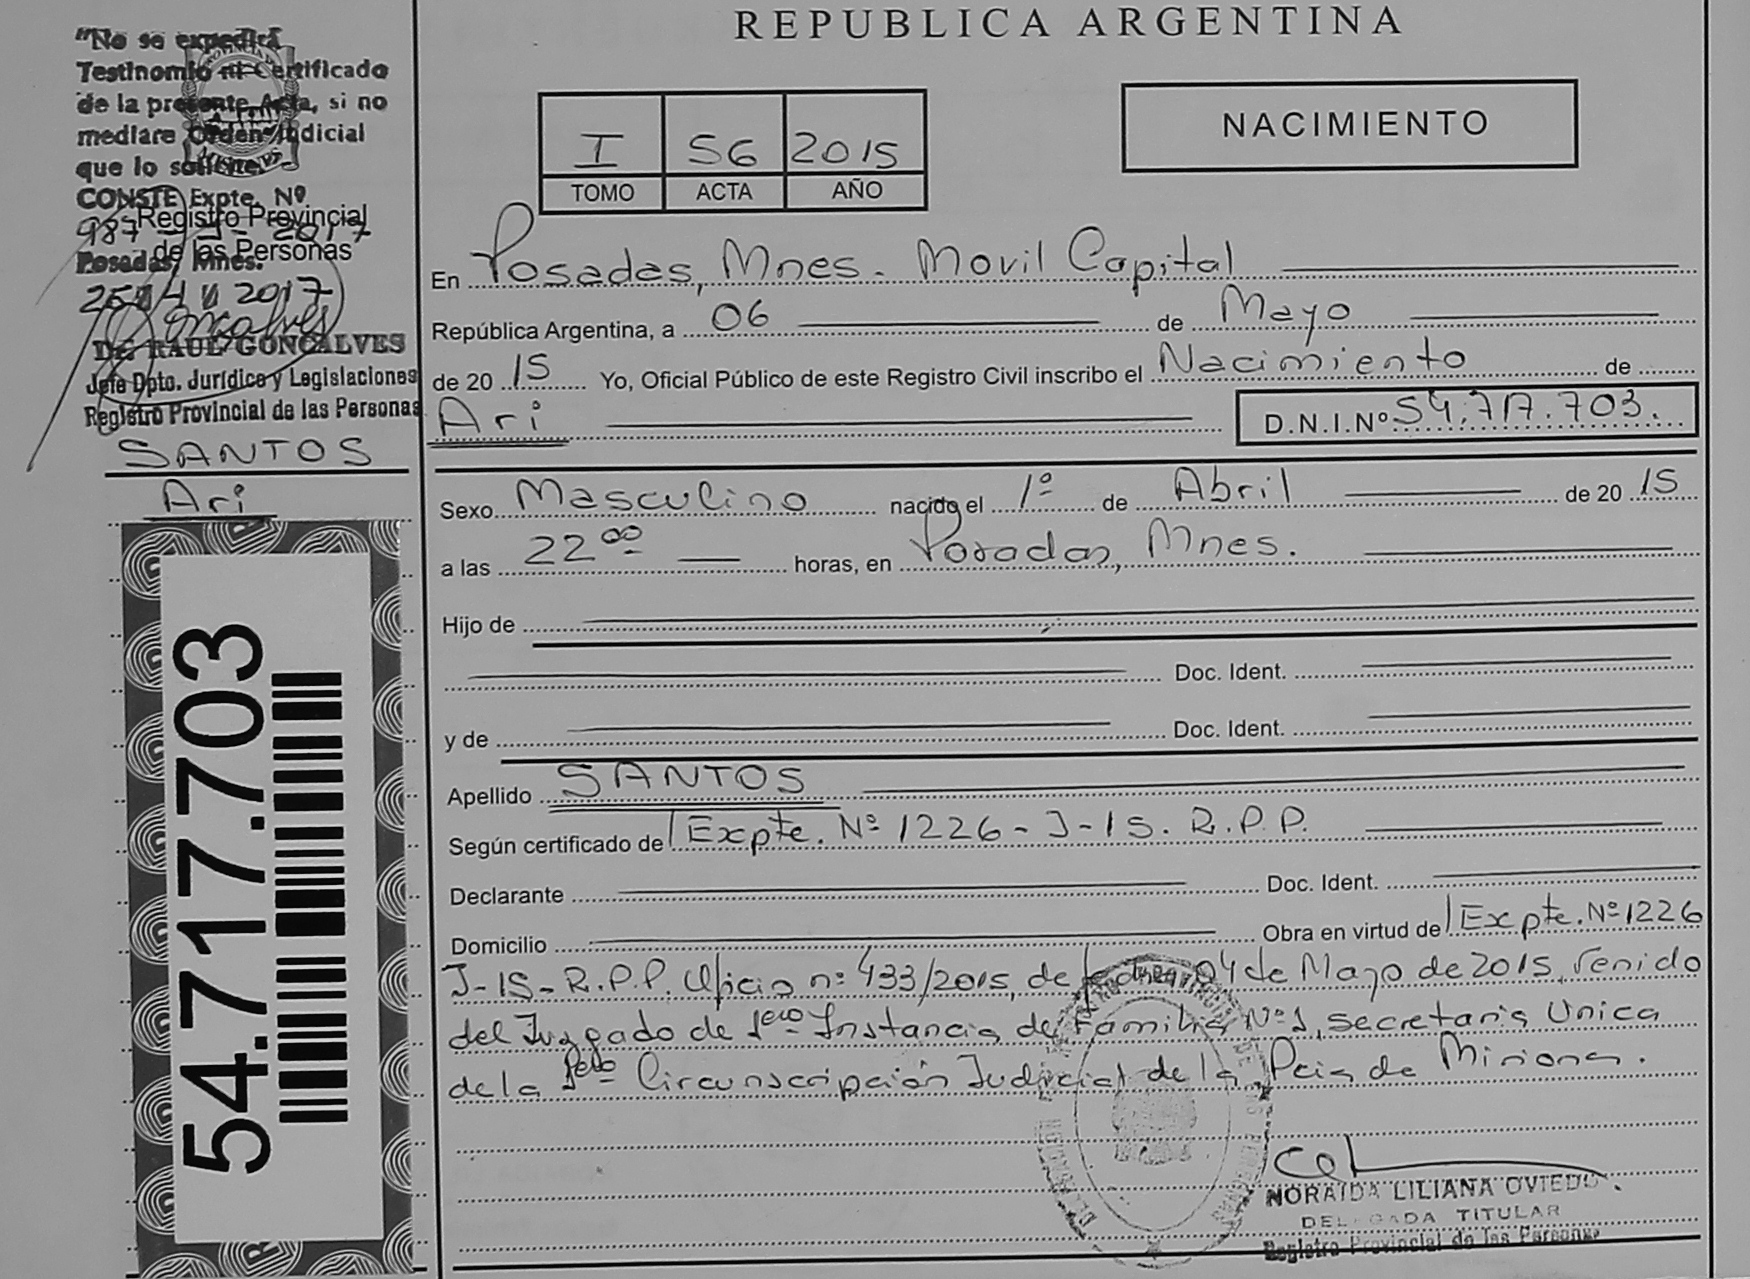 "No se expedirá
Testinomio ni Certificado
de la presente Acta, si no
mediare Orden Judicial
que lo solicite.
CONSTE Expte. Nº
987 2017
Registro Provincial
de las Personas
Posadas, Mnes.
2017
Dr. RAUL GONCALVES
Jefe Dpto. Jurídico y Legislaciones
Registro Provincial de las Personas
SANTOS
Ari
54.717.703
REPUBLICA ARGENTINA
I 56 2015
TOMO ACTA AÑO
NACIMIENTO
En Posadas, Mnes. Movil Capital
República Argentina, a 06 de Mayo
de 20 15 Yo, Oficial Público de este Registro Civil inscribo el Nacimiento de
Ari D.N.I.Nº 54.717.703.
Sexo Masculino nacido el 1º de Abril de 20 15
a las 22 00 horas, en Posadas, Mnes.
Hijo de
Doc. Ident.
y de Doc. Ident.
Apellido SANTOS
Según certificado de Expte. Nº 1226-J-15. R.P.P.
Declarante Doc. Ident.
Domicilio Obra en virtud de Expte. Nº 1226
J-15-R.P.P. Oficio nº 433/2015, de fecha 04 de Mayo de 2015, venido
del Juzgado de 1era Instancia de Familia Nº 1, secretaria Unica
de la 1era Circunscripción Judicial de la Pcia de Misiones.
NORAIDA LILIANA OVIEDO
DELEGADA TITULAR
Registro Provincial de las Personas